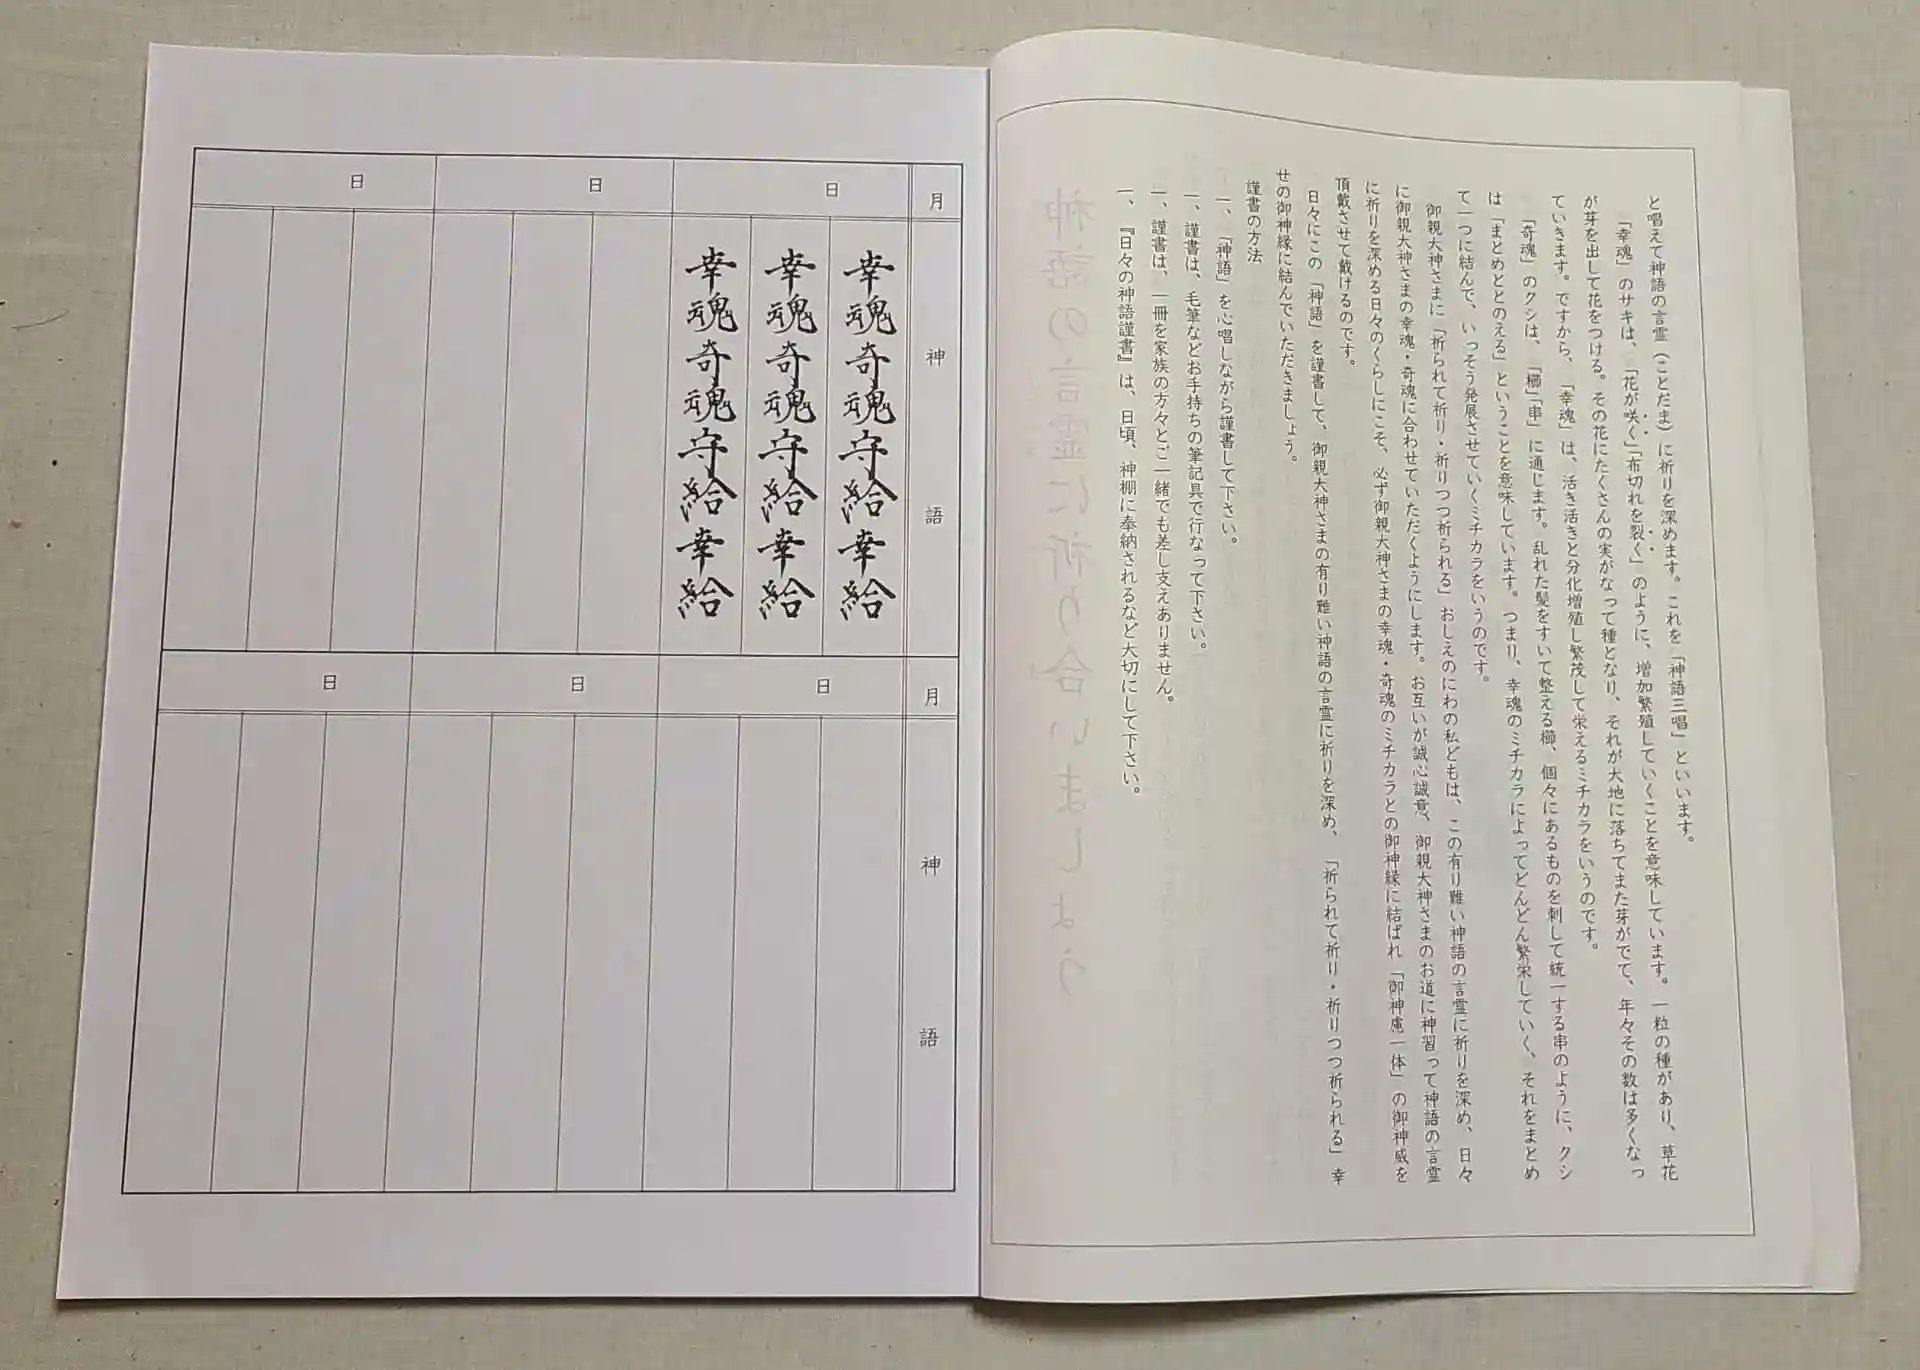 と唱えて神語の言霊（ことだま）に祈りを深めます。これを「神語三唱」といいます。
「幸魂」のサキは、「花が咲く」「布切れを裂く」のように、増加繁殖していくことを意味しています。一粒の種があり、草花
が芽を出して花をつける。その花にたくさんの実がなって種となり、それが大地に落ちてまた芽がでて、年々その数は多くなっ
ていきます。ですから、「幸魂」は、活き活きと分化増殖し繁茂して栄えるミチカラをいうのです。
「奇魂」のクシは、「櫛」「串」に通じます。乱れた髪をすいて整える櫛、個々にあるものを刺して統一する串のように、クシ
は「まとめととのえる」ということを意味しています。つまり、幸魂のミチカラによってどんどん繁栄していく、それをまとめ
て一つに結んで、いっそう発展させていくミチカラをいうのです。
御親大神さまに「祈られて祈り・祈りつつ祈られる」おしえのにわの私どもは、この有り難い神語の言霊に祈りを深め、日々
に御親大神さまの幸魂・奇魂に合わせていただくようにします。お互いが誠心誠意、御親大神さまのお道に神習って神語の言霊
に祈りを深める日々のくらしにこそ、必ず御親大神さまの幸魂・奇魂のミチカラとの御神縁に結ばれ「御神慮一体」の御神威を
頂戴させて戴けるのです。
日々にこの「神語」を謹書して、御親大神さまの有り難い神語の言霊に祈りを深め、「祈られて祈り・祈りつつ祈られる」幸
せの御神縁に結んでいただきましょう。
謹書の方法
一、「神語」を心唱しながら謹書して下さい。
一、謹書は、毛筆などお手持ちの筆記具で行なって下さい。
一、謹書は、一冊を家族の方々とご一緒でも差し支えありません。
一、『日々の神語謹書』は、日頃、神棚に奉納されるなど大切にして下さい。
神語の言霊に祈り合いましょう
月
神語
日
幸魂奇魂守給幸給
幸魂奇魂守給幸給
幸魂奇魂守給幸給
日
日
月
神語
日
日
日